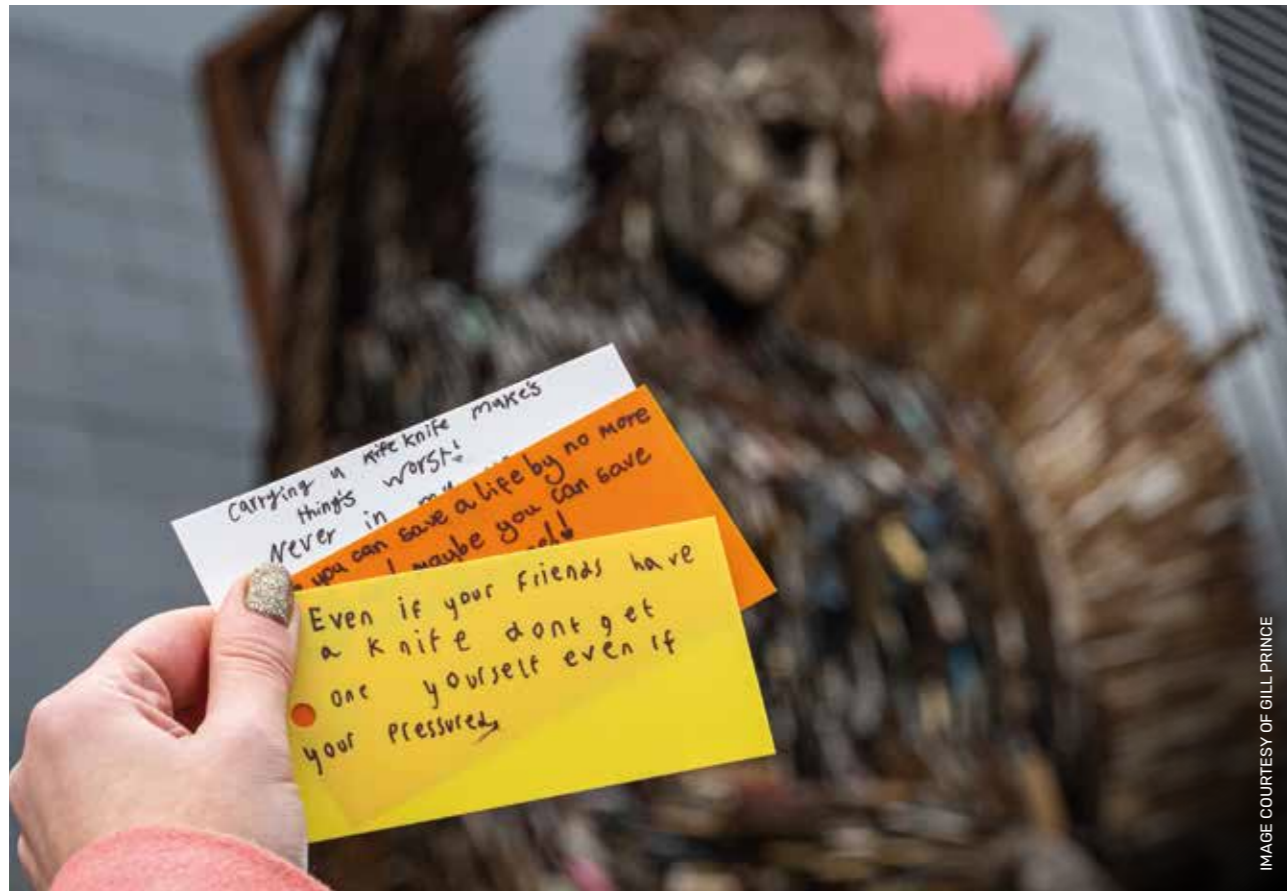 carrying a kife knife make's
thing's worst!
Never in
you can save a life by no more
maybe you can save
Even if your friends have
a knife dont get
one yourself even if
your pressured
IMAGE COURTESY OF GILL PRINCE